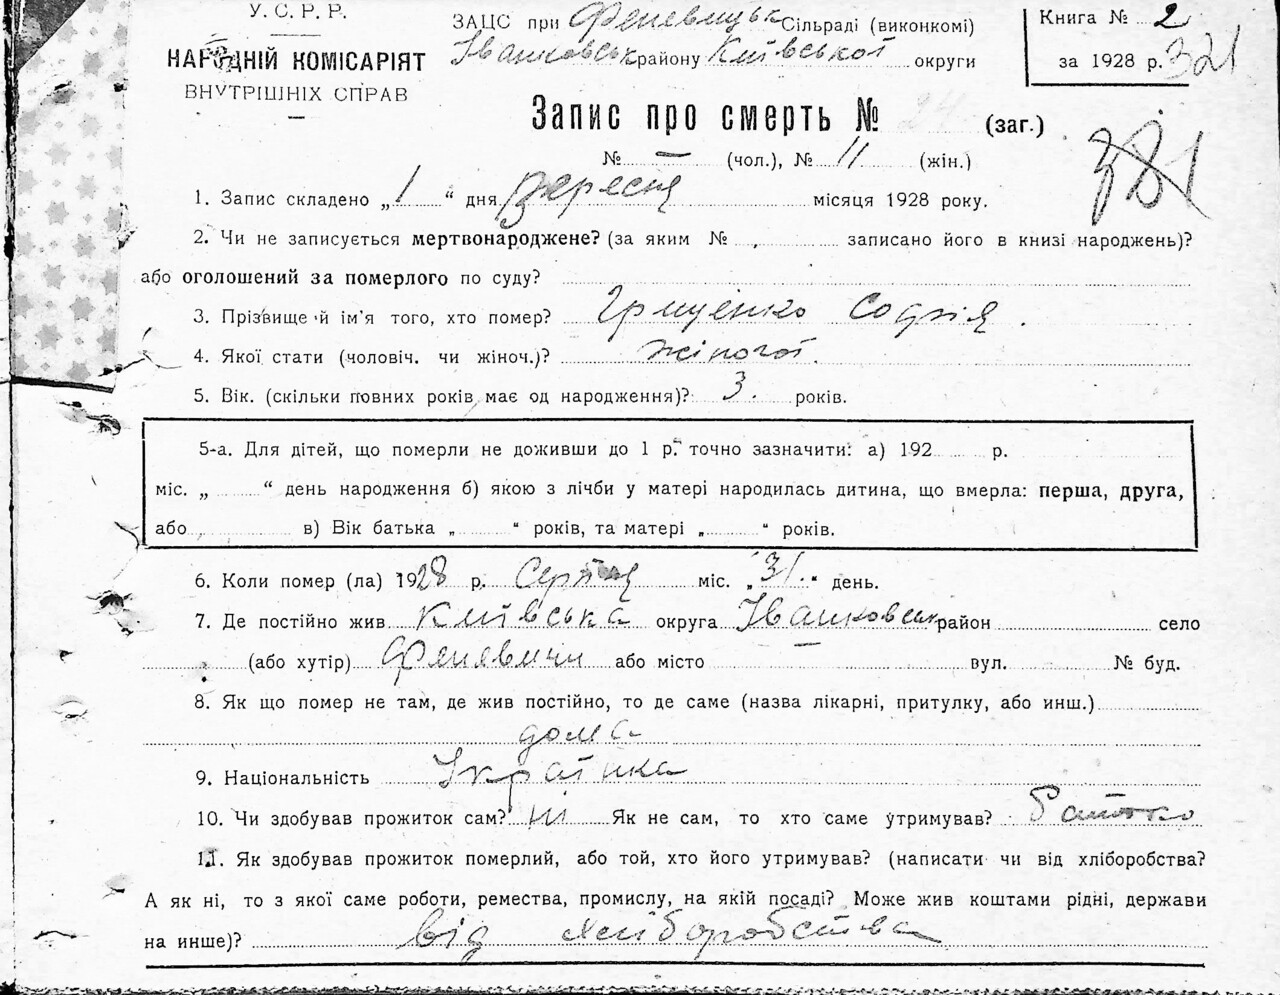 У. С. Р. Р.
НАРОДНІЙ КОМІСАРІЯТ
ВНУТРІШНІХ СПРАВ
ЗАЦС при Феневицьк Сільраді (виконкомі)
Іванковськ району Київської округи
Книга № 2
за 1928 р. 321
Запис про смерть № 24 (заг.)
№ — (чол.), № 11 (жін.)
381
1. Запис складено „1“ дня Вересня місяця 1928 року.
2. Чи не записується мертвонароджене? (за яким № записано його в книзі народжень)?
або оголошений за померлого по суду?
3. Прізвище й ім'я того, хто помер? Грищенко Софія.
4. Якої стати (чоловіч. чи жіноч.)? жіночої.
5. Вік. (скільки повних років має од народження)? 3. років.
5-а. Для дітей, що померли не доживши до 1 р. точно зазначити: а) 192 р.
міс. „ “ день народження б) якою з лічби у матері народилась дитина, що вмерла: перша, друга,
або в) Вік батька „ “ років, та матері „ “ років.
6. Коли помер (ла) 1928 р. Серпня міс. „31.“ день.
7. Де постійно жив Київська округа Іванковськ район село
(або хутір) Феневичи або місто — вул. № буд.
8. Як що помер не там, де жив постійно, то де саме (назва лікарні, притулку, або инш.)
дома
9. Національність Українка
10. Чи здобував прожиток сам? ні Як не сам, то хто саме утримував? Батько
11. Як здобував прожиток померлий, або той, хто його утримував? (написати чи від хліборобства?
А як ні, то з якої саме роботи, ремества, промислу, на якій посаді? Може жив коштами рідні, держави
на инше)? від хліборобства